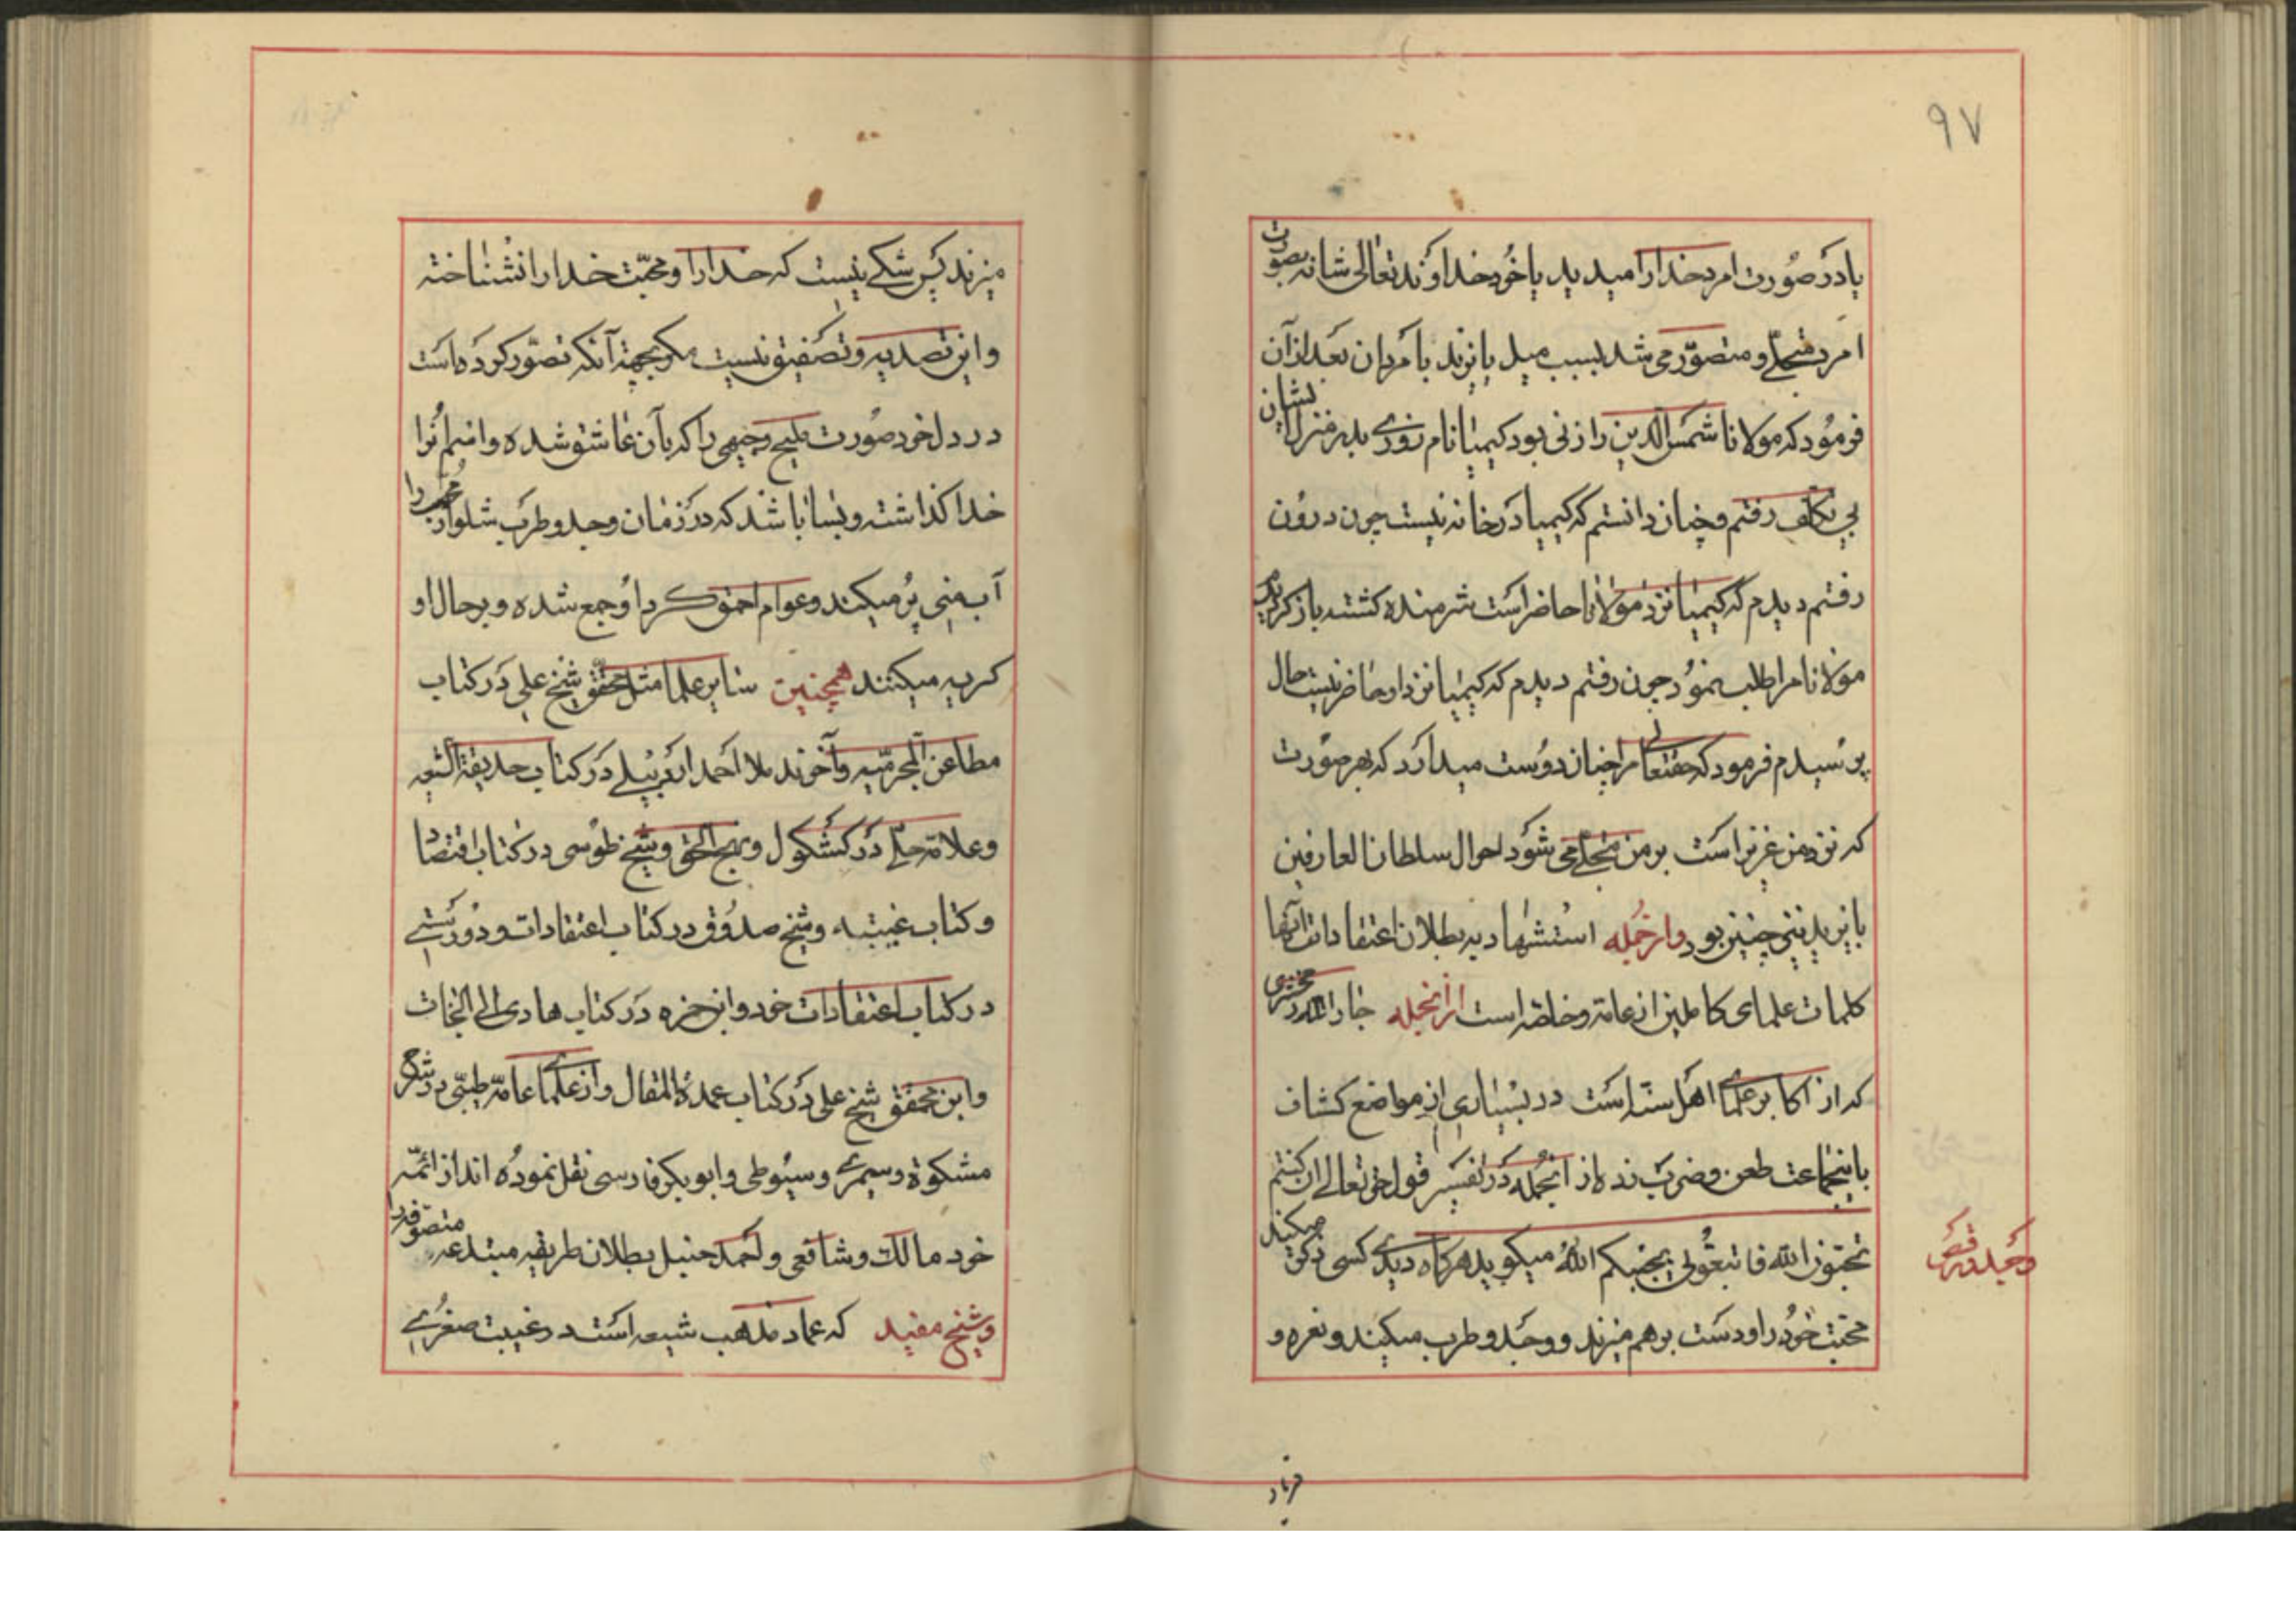 ۹۷
یا در صورت امرد خدا را میدید یا خود خداوند تعالی شانه بصورت
امرد متجلی و متصور می شد بسبب میل بایزید بامردان بعد از آن
فرمود که مولانا شمس الدین را زنی بود کیمیا نام روزی بدر منزل ایشان
بی تکلف رفتم و چنان دانستم که کیمیا در خانه نیست چون درون
رفتم دیدم که کیمیا نزد مولانا حاضر است شرمنده کشته باز کردیدم
مولانا مرا طلب نمود چون رفتم دیدم که کیمیا نزد او حاضر نیست حال
پرسیدم فرمود که حقتعالی مرا چنان دوست میدارد که بهر صورت
که نزد من عزیز است بر من متجلی می شود احوال سلطان العارفین
بایزید نیز چنین بود وازجمله استشهادیه بطلان اعتقادات آنها
کلمات علمای کاملین از عامه و خاصه است ازانجمله جار الله زمخشری
که از اکابر علمای اهل سنة است در بسیاری از مواضع کشاف
باینجماعت طعن و ضرب زده از انجمله در تفسیر قول حق تعالی ان کنتم
تحبون الله فاتبعونی یحببکم الله میکوید هرکاه دیدی کسی ذکر میکند
محبت خود را و دست برهم میزند و وجد و طرب میکیند و نعره و
وجد و رقص
میزند پس شکی نیست که خدا را و محبت خدا را نشناخته
و این تصدیه و تصفیق نیست مکر بجهة آنکه تصور کرده است
در دل خود صورت ملیح وجیهی را که بآن عاشق شده و اسم او را
خدا کذاشته و بسا باشد که در زمان وجد و طرب شلوار را
آب منی پر میکیند و عوام احمق کرد او جمع شده و بر حال او
کریه میکنند همچنین سایر علما مثل محقق شیخ علی در کتاب
مطاعن المجرمیه و آخوند ملا احمد اردبیلی در کتاب حدیقة الشیعه
و علامه حلی در کشکول و نهج الحق و شیخ طوسی در کتاب اقتصاد
و کتاب غیبته و شیخ صدوق در کتاب اعتقادات و دوریستی
در کتاب اعتقادات خود و ابن حمزه در کتاب هادی الی النجات
و ابن محقق شیخ علی در کتاب عمدة المقال و از علمای عامه طیبی در شرح
مشکوة و سیمری و سیوطی و ابوبکر فارسی نقل نموده اند از ائمه
خود مالک و شافعی و احمد حنبل بطلان طریقه مبتدعه متصوفه را
و شیخ مفید که عماد مذهب شیعه است در غیبت صغری